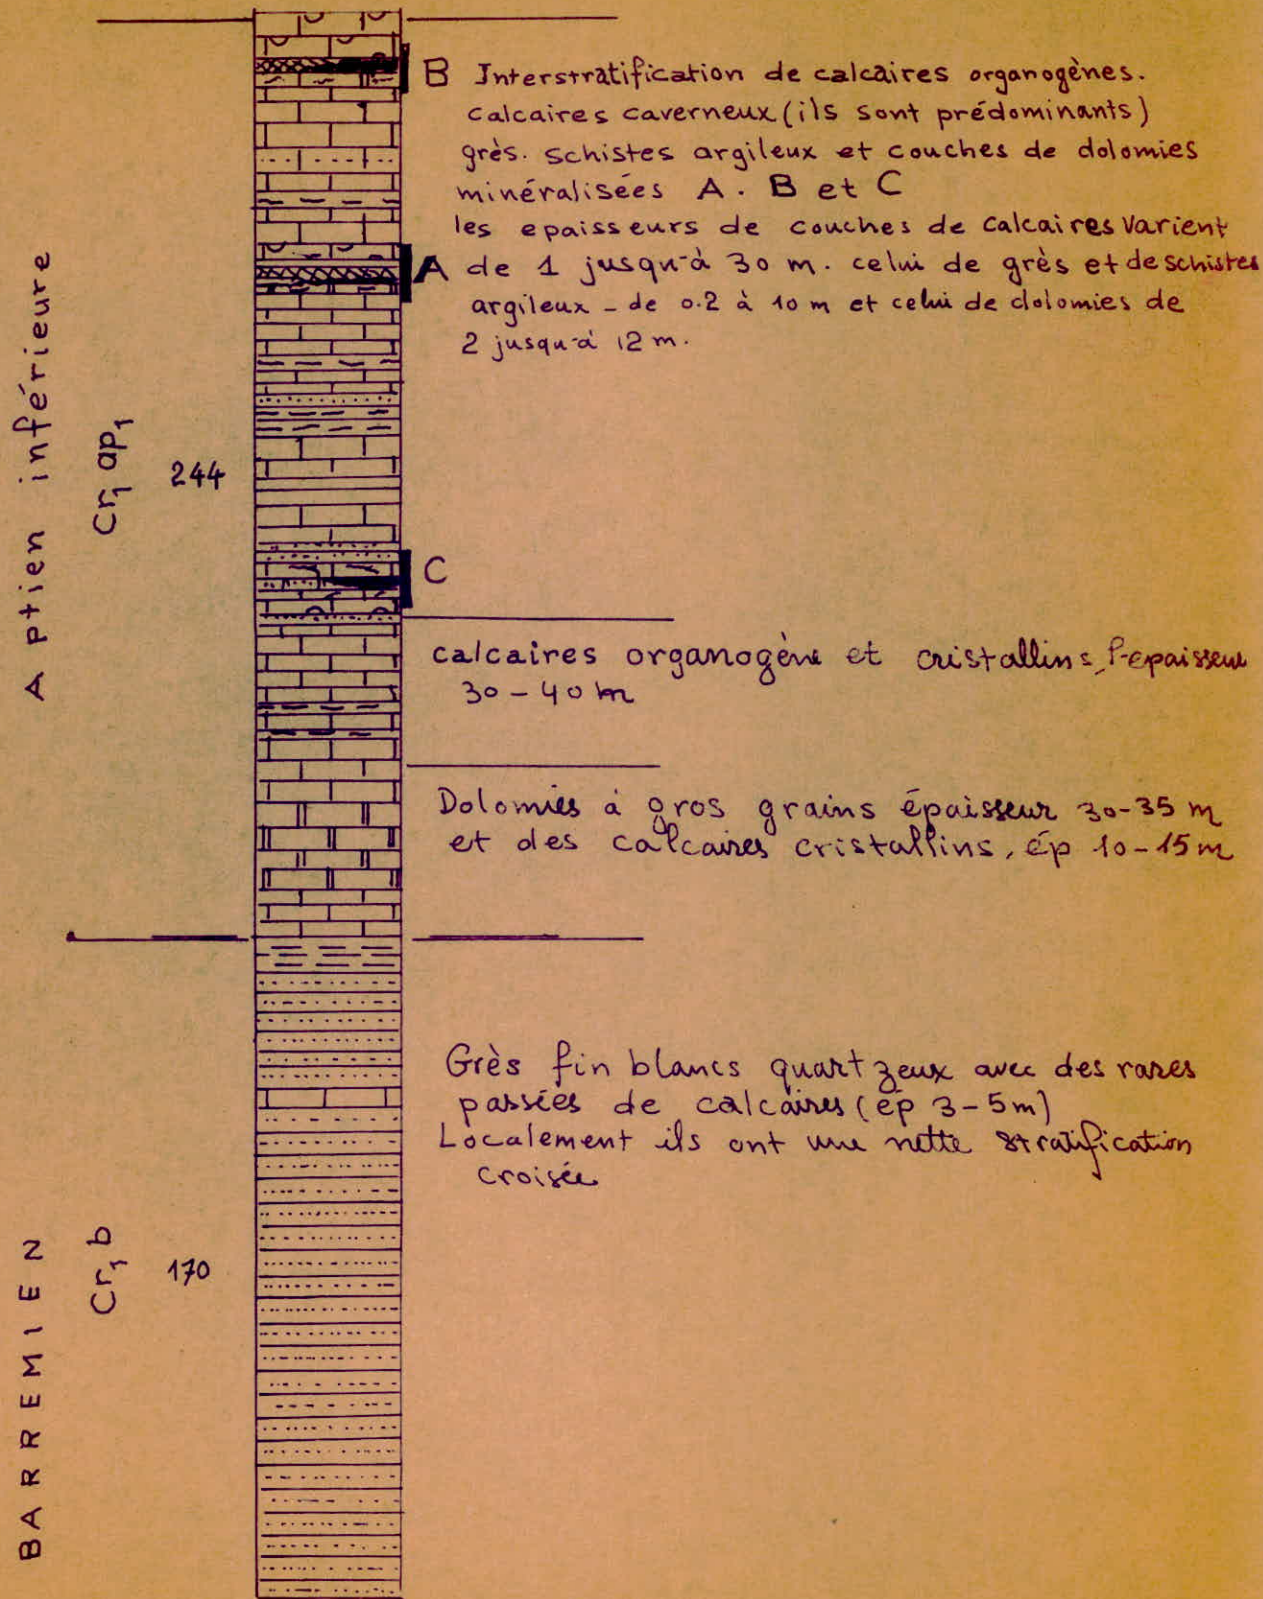 B Interstratification de calcaires organogènes.
calcaires caverneux (ils sont prédominants)
grès. schistes argileux et couches de dolomies
minéralisées A. B et C
les epaisseurs de couches de calcaires varient
A de 1 jusqu'à 30 m. celui de grès et de schistes
argileux - de 0.2 à 10 m et celui de dolomies de
2 jusqu'à 12 m.
Aptien inférieure
Cr₁ ap₁
244
C
calcaires organogène et cristallins, l'epaisseur
30 - 40 m
Dolomies à gros grains épaisseur 30-35 m
et des calcaires cristallins, ép 10-15 m
Grès fin blancs quartzeux avec des rares
passées de calcaires (ép 3-5m)
Localement ils ont une nette stratification
croisée
BARREMIEN
Cr₁ b
170